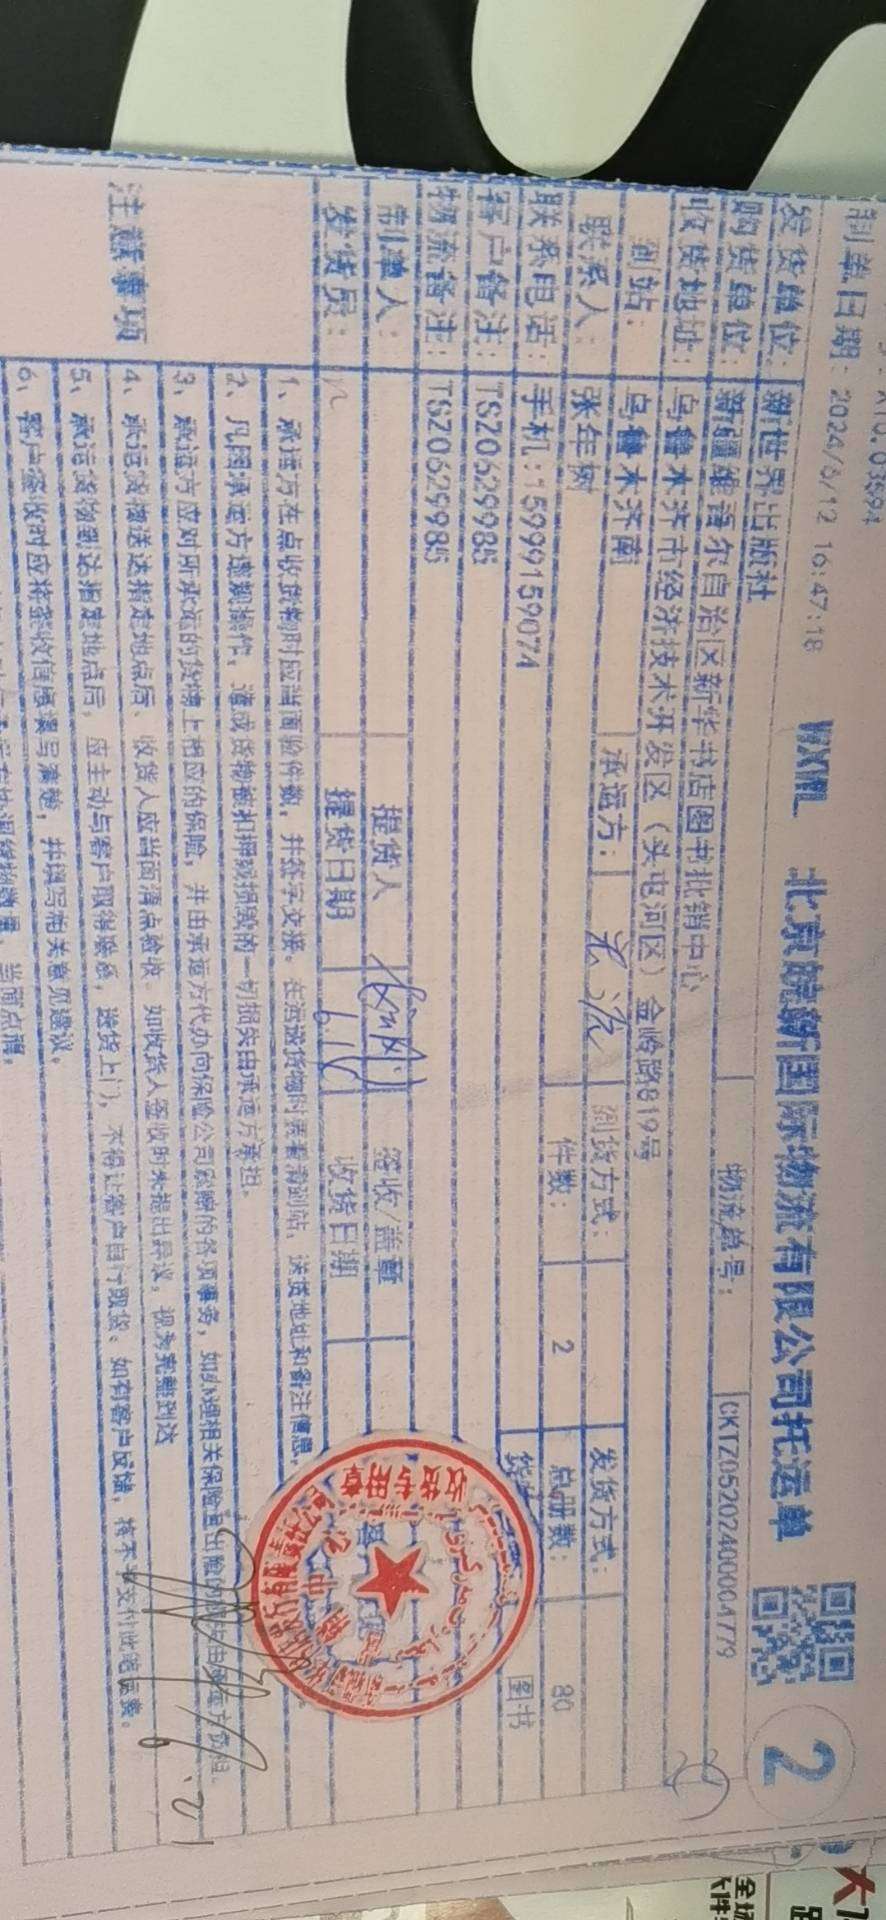 制单日期：2024/6/12 16:47:18
WXWL 北京皖新国际物流有限公司托运单
2
发货单位：新世界出版社
物流总号：CKTZ0520240004779
购货单位：新疆维吾尔自治区新华书店图书批销中心
收货地址：乌鲁木齐市经济技术开发区（头屯河区）金岭路819号
到站：乌鲁木齐南 承运方： 到货方式： 发货方式：
联系人：张年树 件数：2 总册数：80
联系电话：手机:15999159074 图书
客户备注：TSZ0629985
物流备注：TSZ0629985
制单人： 提货人 签收/盖章
发货员： 提货日期 6.16 收货日期
收货专用章
注意事项
1、承运方在点收货物时应当面验件数，并签字交接。在运送货物时要看清到站、送货地址和备注信息。
2、凡因承运方违规操作，造成货物被扣押或损毁的一切损失由承运方承担。
3、承运方应对所承运的货物上相应的保险，并由承运方代办向保险公司索赔的各项事务，如办理相关保险
4、承运货物送达指定地点后、收货人应当面清点验收。如收货人签收时未提出异议，视为完整到达
5、承运货物到达指定地点后，应主动与客户取得联系，送货上门，不得让客户自行取货。如有客户反馈，将不予支付此笔运费。
6、客户签收时应将签收信息填写清楚，并填写相关意见建议。